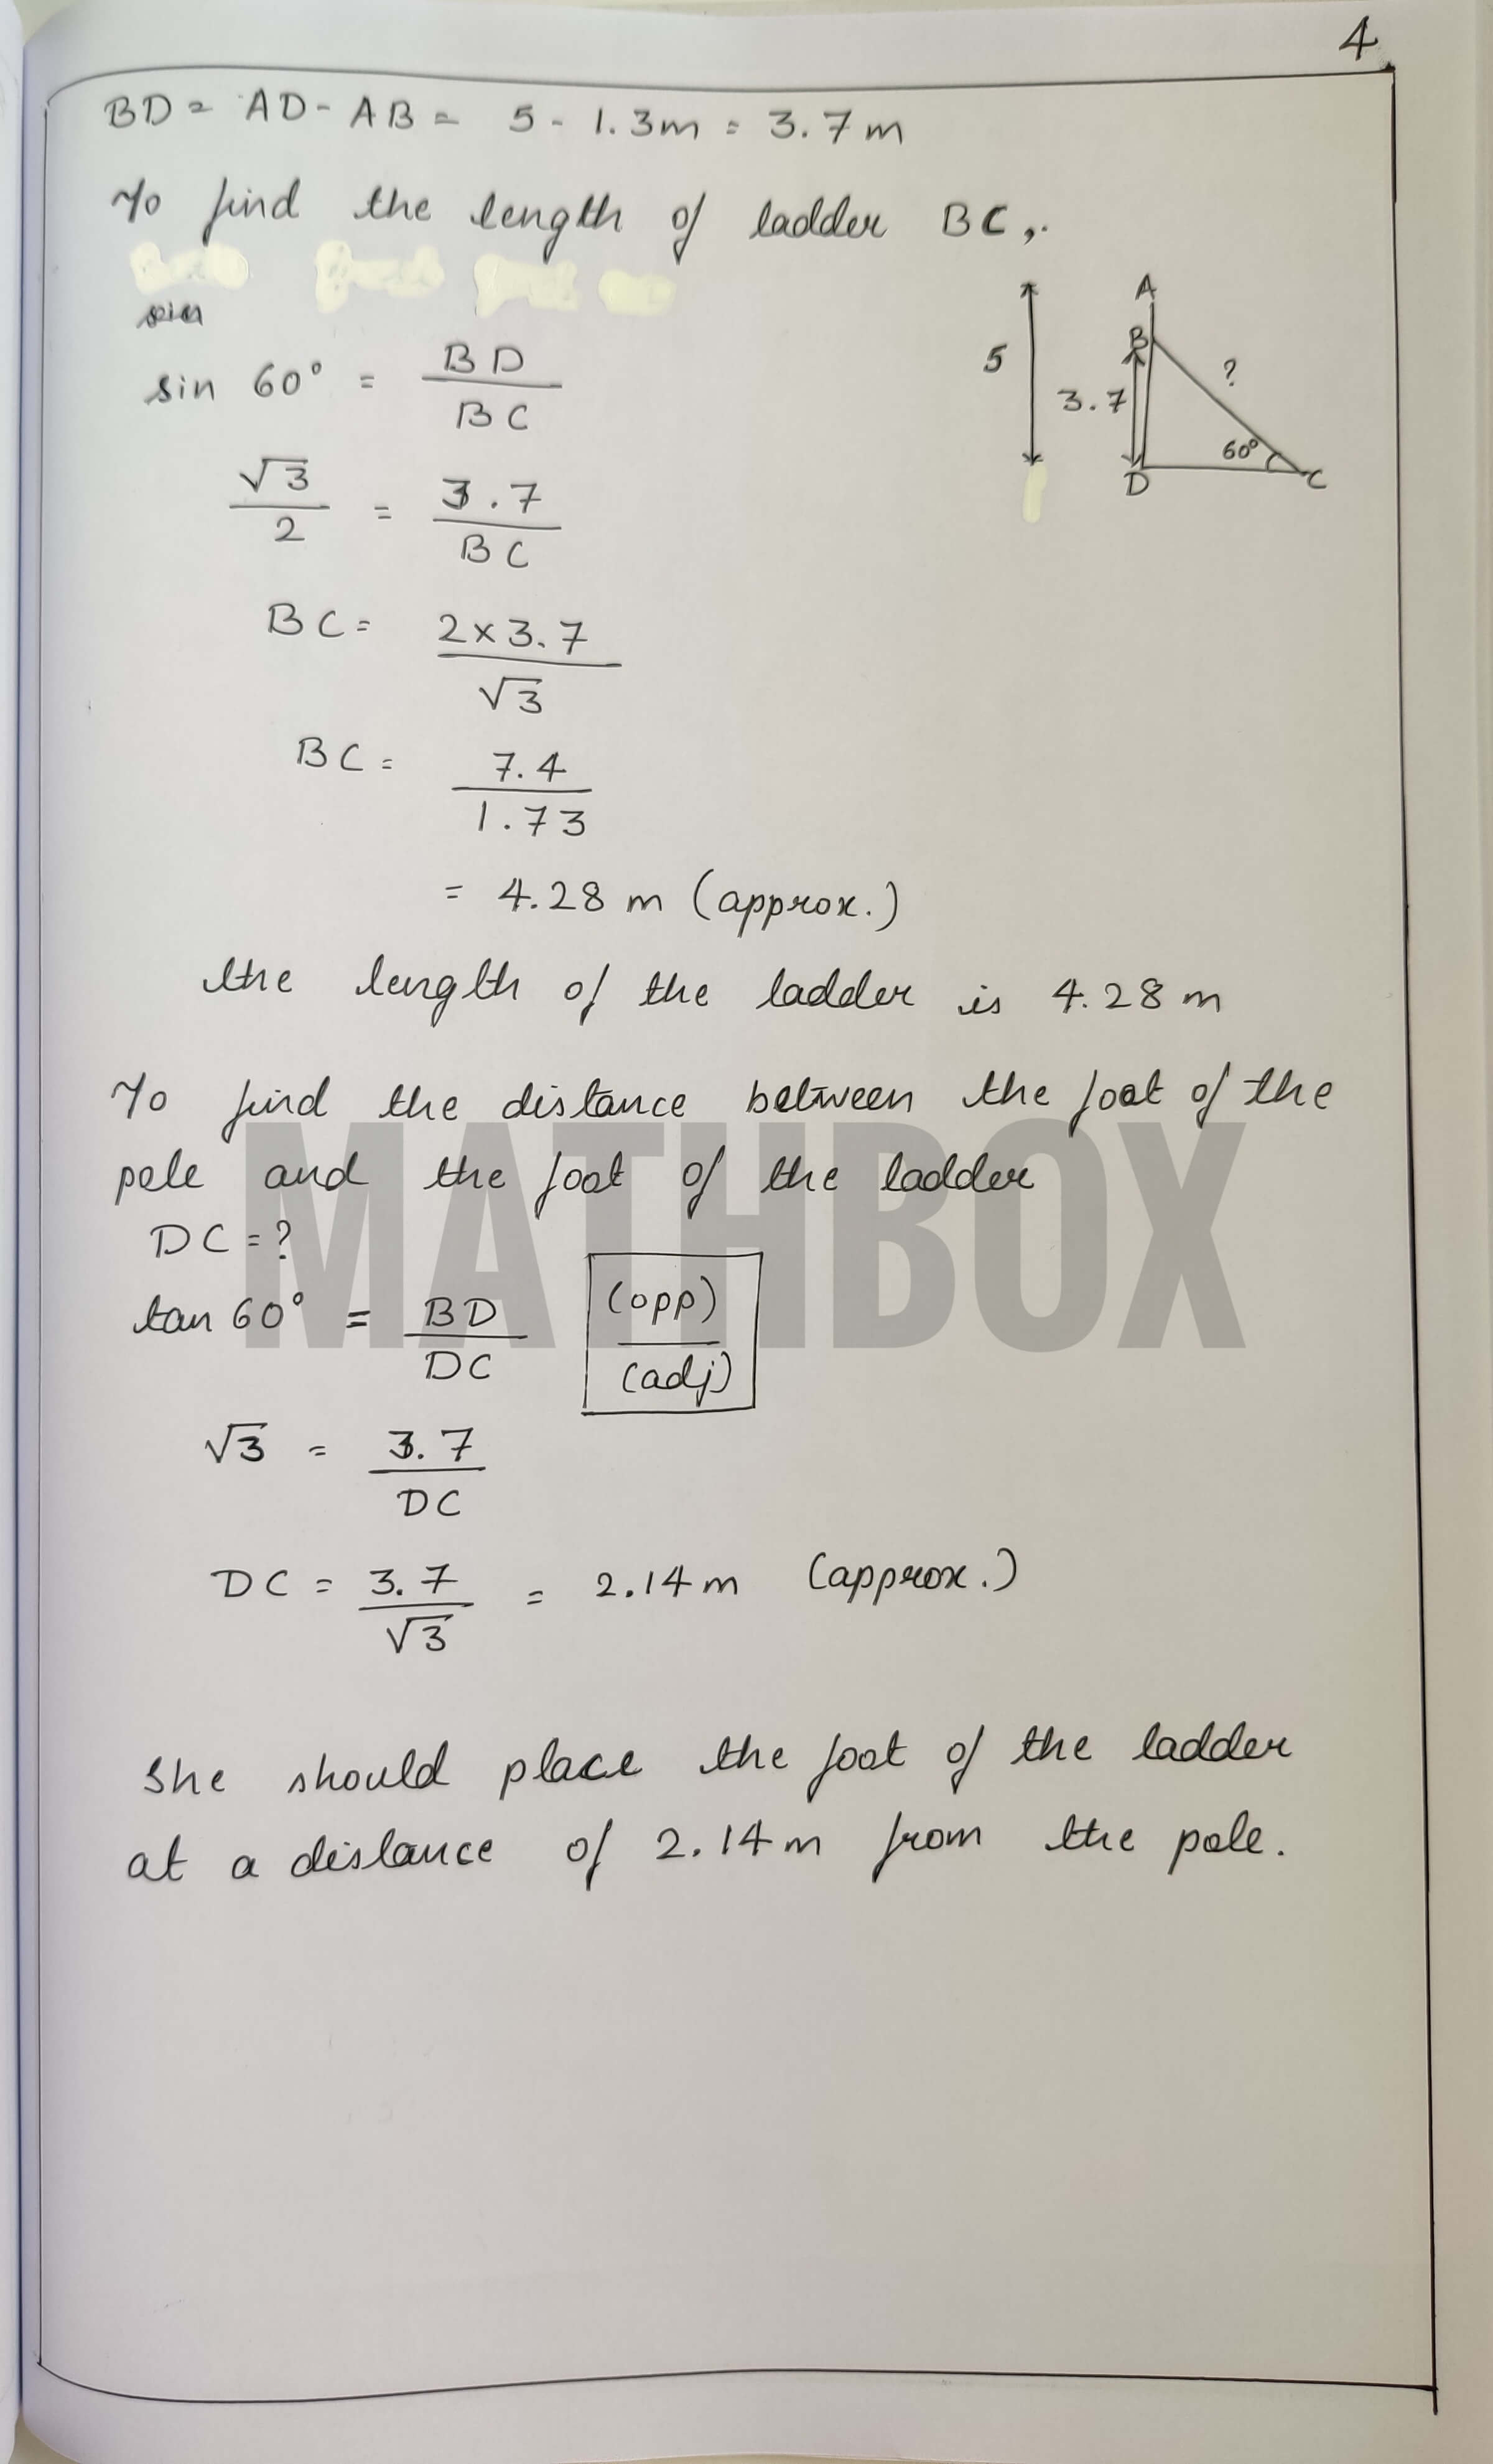 4
BD = AD - AB = 5 - 1.3m = 3.7 m
To find the length of ladder BC,.
sin
sin 60° = BD / BC
√3 / 2 = 3.7 / BC
BC = 2 x 3.7 / √3
BC = 7.4 / 1.73
= 4.28 m (approx.)
A
B
5
?
3.7
60°
D
C
the length of the ladder is 4.28 m
To find the distance between the foot of the
pole and the foot of the ladder
MATHBOX
DC = ?
tan 60° = BD / DC (opp) / (adj)
√3 = 3.7 / DC
DC = 3.7 / √3 = 2.14 m (approx.)
She should place the foot of the ladder
at a distance of 2.14 m from the pole.